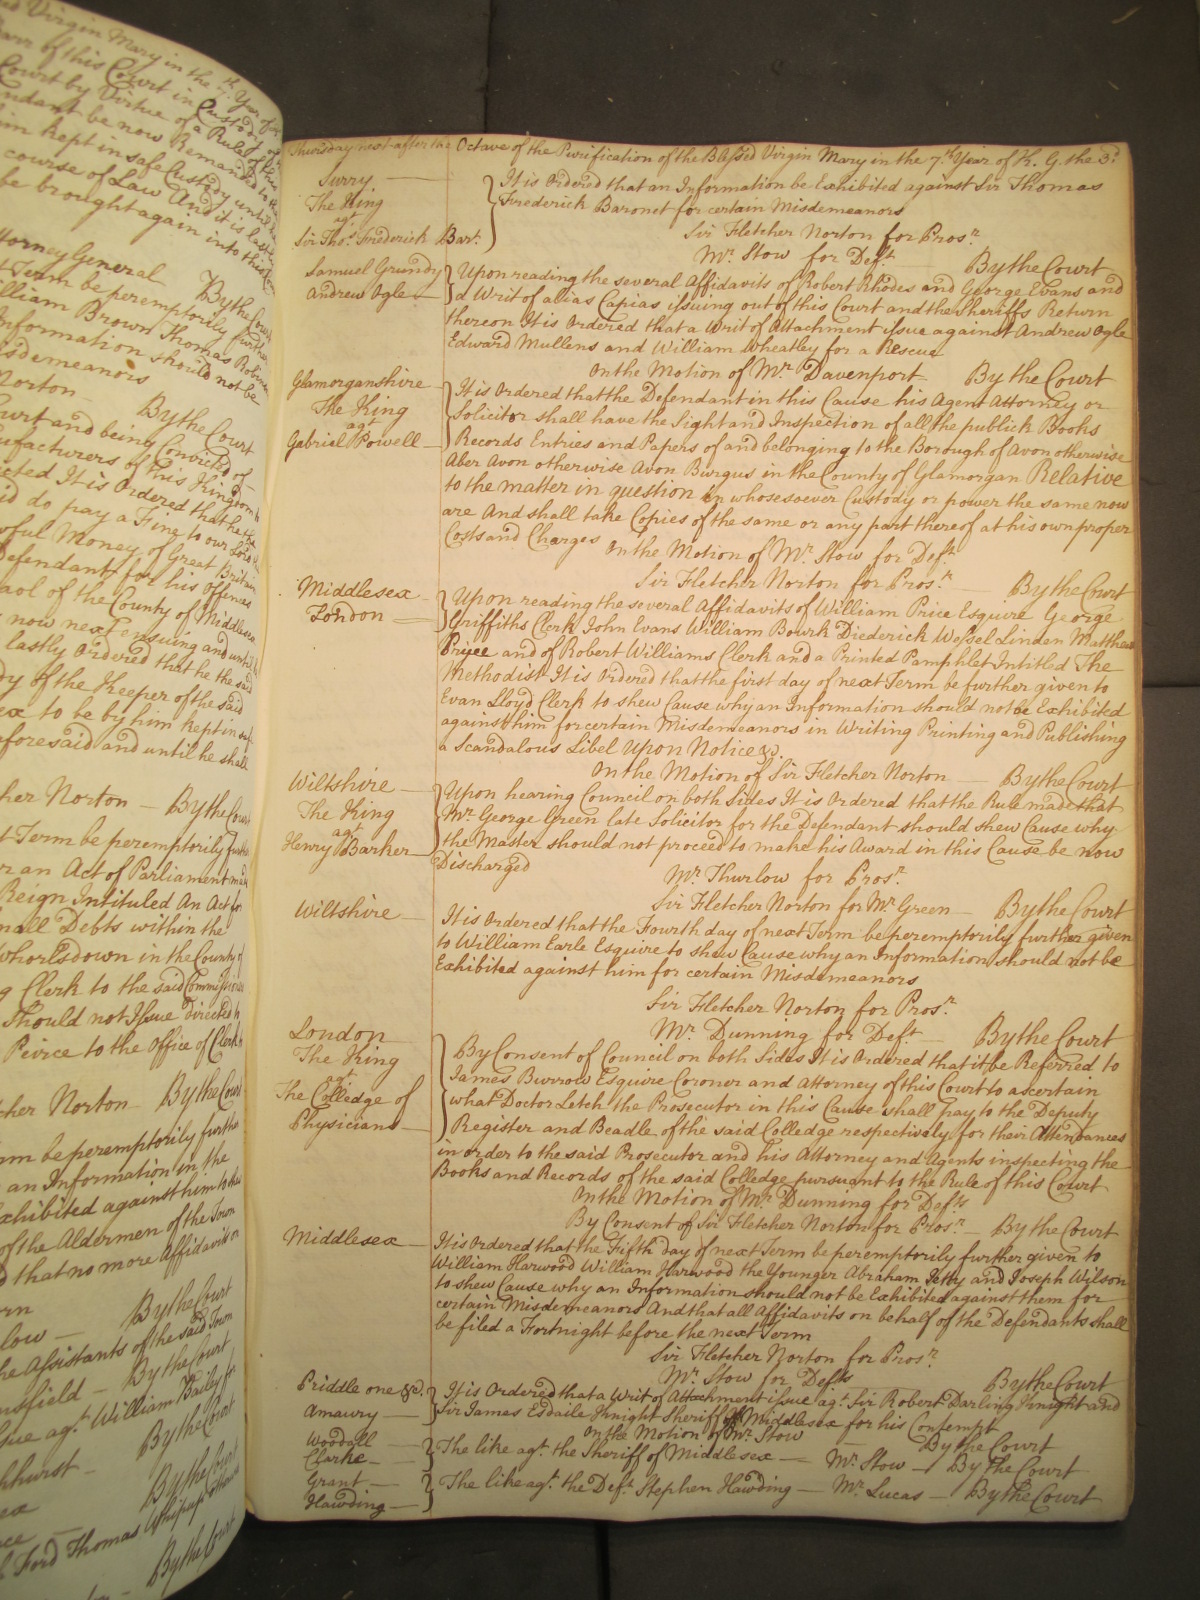 Virgin Mary in the 7th Year of
of this Court in Custody
Court by Virtue of a Rule of this
be now Remanded
kept in safe Custody until
course of Law And it is lastly
be brought again into this
Attorney General By the Court
Term be peremptorily further
William Brown Thomas
Information should not be
Misdemeanors
Norton By the Court
Court and being Convicted of
of this Kingdom
It is Ordered that he the
do pay a Fine to our
Money of Great Britain
Defendant for his Offences
of the County of Middlesex
now next ensuing and until
lastly Ordered that he the said
of the Keeper of the said
to be by him kept in
aforesaid and until he shall
Norton — By the Court
Term be peremptorily
an Act of Parliament made
Reign Intituled An Act for
Small Debts within the
in the County of
Clerk to the said
Should not Issue directed to
Peirce to the Office of Clerk
Norton By the Court
be peremptorily further
an Information in the
Exhibited against him
of the Aldermen of the Town
that no more Affidavits
By the Court
the Assistants of the said Town
By the Court
agt. William Bailey
By the Court
By the Court
Ford Thomas
By the Court
Thursday next after the Octave of the Purification of the Blessed Virgin Mary in the 7th Year of K. G. the 3d
Surry —
The King
agt.
Sir Thos. Frederick Bart.
It is Ordered that an Information be Exhibited against Sir Thomas
Frederick Baronet for certain Misdemeanors
Sir Fletcher Norton for Prosr.
Mr. Stow for Deft. — By the Court
Samuel Grundy
Andrew Ogle —
Upon reading the several Affidavits of Robert Rhodes and George Evans and
a Writ of alias Capias issuing out of this Court and the Sheriffs Return
thereon It is Ordered that a Writ of Attachment issue against Andrew Ogle
Edward Mullens and William Wheatley for a Rescue
On the Motion of Mr. Davenport By the Court
Glamorganshire
The King
agt.
Gabriel Powell —
It is Ordered that the Defendant in this Cause his Agent Attorney or
Solicitor shall have the Sight and Inspection of all the publick Books
Records Entries and Papers of and belonging to the Borough of Avon otherwise
Aber Avon otherwise Avon Burgus in the County of Glamorgan Relative
to the matter in question in whosesoever Custody or power the same now
are And shall take Copies of the same or any part thereof at his own proper
Costs and Charges On the Motion of Mr. Stow for Deft.
Sir Fletcher Norton for Prosr. — By the Court
Middlesex —
London —
Upon reading the several Affidavits of William Price Esquire George
Griffiths Clerk John Evans William Bourk Diederick Wessel Linden Matthew
Pryce and of Robert Williams Clerk and a Printed Pamphlet Intitled The
Methodist It is Ordered that the first day of next Term be further given to
Evan Lloyd Clerk to shew Cause why an Information should not be Exhibited
against him for certain Misdemeanors in Writing Printing and Publishing
a Scandalous Libel Upon Notice &c.
On the Motion of Sir Fletcher Norton — By the Court
Wiltshire —
The King
agt.
Henry Barker —
Upon hearing Council on both Sides It is Ordered that the Rule made that
Mr. George Green late Solicitor for the Defendant should shew Cause why
the Master should not proceed to make his Award in this Cause be now
Discharged Mr. Thurlow for Prosr.
Sir Fletcher Norton for Mr. Green — By the Court
Wiltshire —
It is Ordered that the Fourth day of next Term be peremptorily further given
to William Earle Esquire to shew Cause why an Information should not be
Exhibited against him for certain Misdemeanors
Sir Fletcher Norton for Prosr.
Mr. Dunning for Deft. — By the Court
London
The King
agt.
The Colledge of
Physicians —
By Consent of Council on both Sides It is Ordered that it be Referred to
James Burrow Esquire Coroner and Attorney of this Court to ascertain
what Doctor Letch the Prosecutor in this Cause shall pay to the Deputy
Register and Beadle of the said Colledge respectively for their Attendances
in order to the said Prosecutor and his Attorney and Agents inspecting the
Books and Records of the said Colledge pursuant to the Rule of this Court
On the Motion of Mr. Dunning for Defts
By Consent of Sir Fletcher Norton for Prosr. — By the Court
Middlesex —
It is Ordered that the Fifth day of next Term be peremptorily further given to
William Harwood William Harwood the Younger Abraham Jetty and Joseph Wilson
to shew Cause why an Information should not be Exhibited against them for
certain Misdemeanors And that all Affidavits on behalf of the Defendants shall
be filed a Fortnight before the next Term
Sir Fletcher Norton for Prosr.
Mr. Stow for Defts By the Court
Priddle one &c.
Amaury —
It is Ordered that a Writ of Attachment issue agt. Sir Robert Darling Knight and
Sir James Esdaile Knight Sheriff of Middlesex for his Contempt
On the Motion of Mr. Stow — By the Court
Woodall —
Clarke —
The like agt. the Sheriff of Middlesex — Mr. Stow — By the Court
Grant —
Hawding —
The like agt. the Deft. Stephen Hawding — Mr. Lucas — By the Court